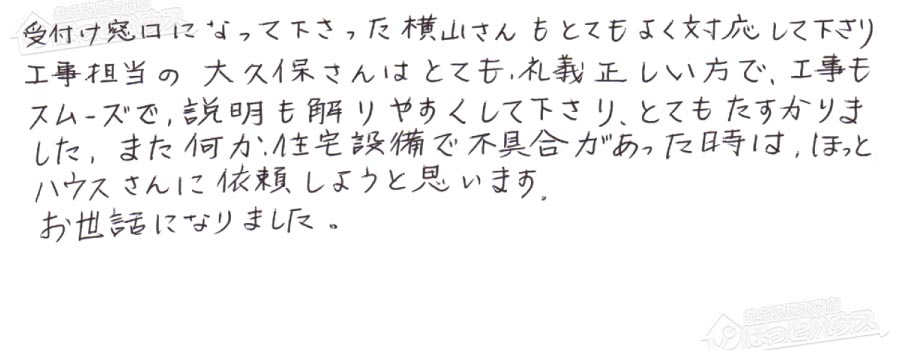 受付け窓口になって下さった横山さんもとてもよく対応して下さり
工事担当の大久保さんはとても、礼義正しい方で、工事も
スムーズで、説明も解りやすくして下さり、とてもたすかりま
した。また何か、住宅設備で不具合があった時は、ほっと
ハウスさんに依頼しようと思います。
お世話になりました。
住宅設備専門店
ほっとハウス